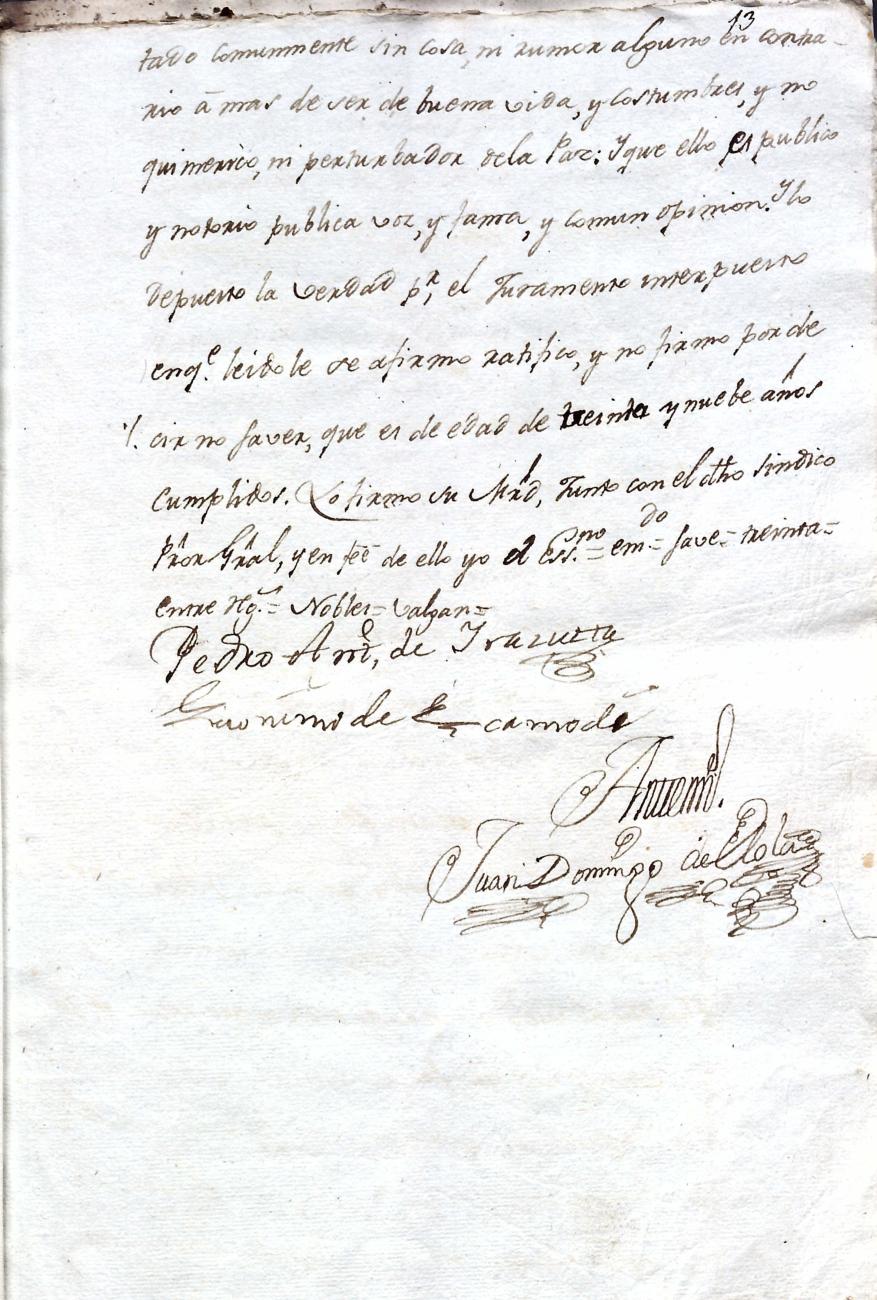 13
tado comunmente sin cosa, ni rumor alguno en contra-
rio â mas de ser de buena vida, y costumbres, y no
quimerico, ni perturbador dela Paz: Y que ello es publico
y notorio publica voz, y fama, y comun opinion. Y lo
depuesto la verdad pr. el Juramento interpuesto
enqe. leidole se afirmo ratifico, y no firmo por de
cir no saver, que es de edad de treinta y nuebe años
cumplidos. Lo firmo su Mrd, Junto con el dho sindico
Pror Gral, y en feé de ello yo el Essno.= emdo.= save= treinta=
entre Rgs.= Nobles= valgan=
Pedro Antt. de Yrazusta
Geronimo de
Antemi.
Juan Domingo de